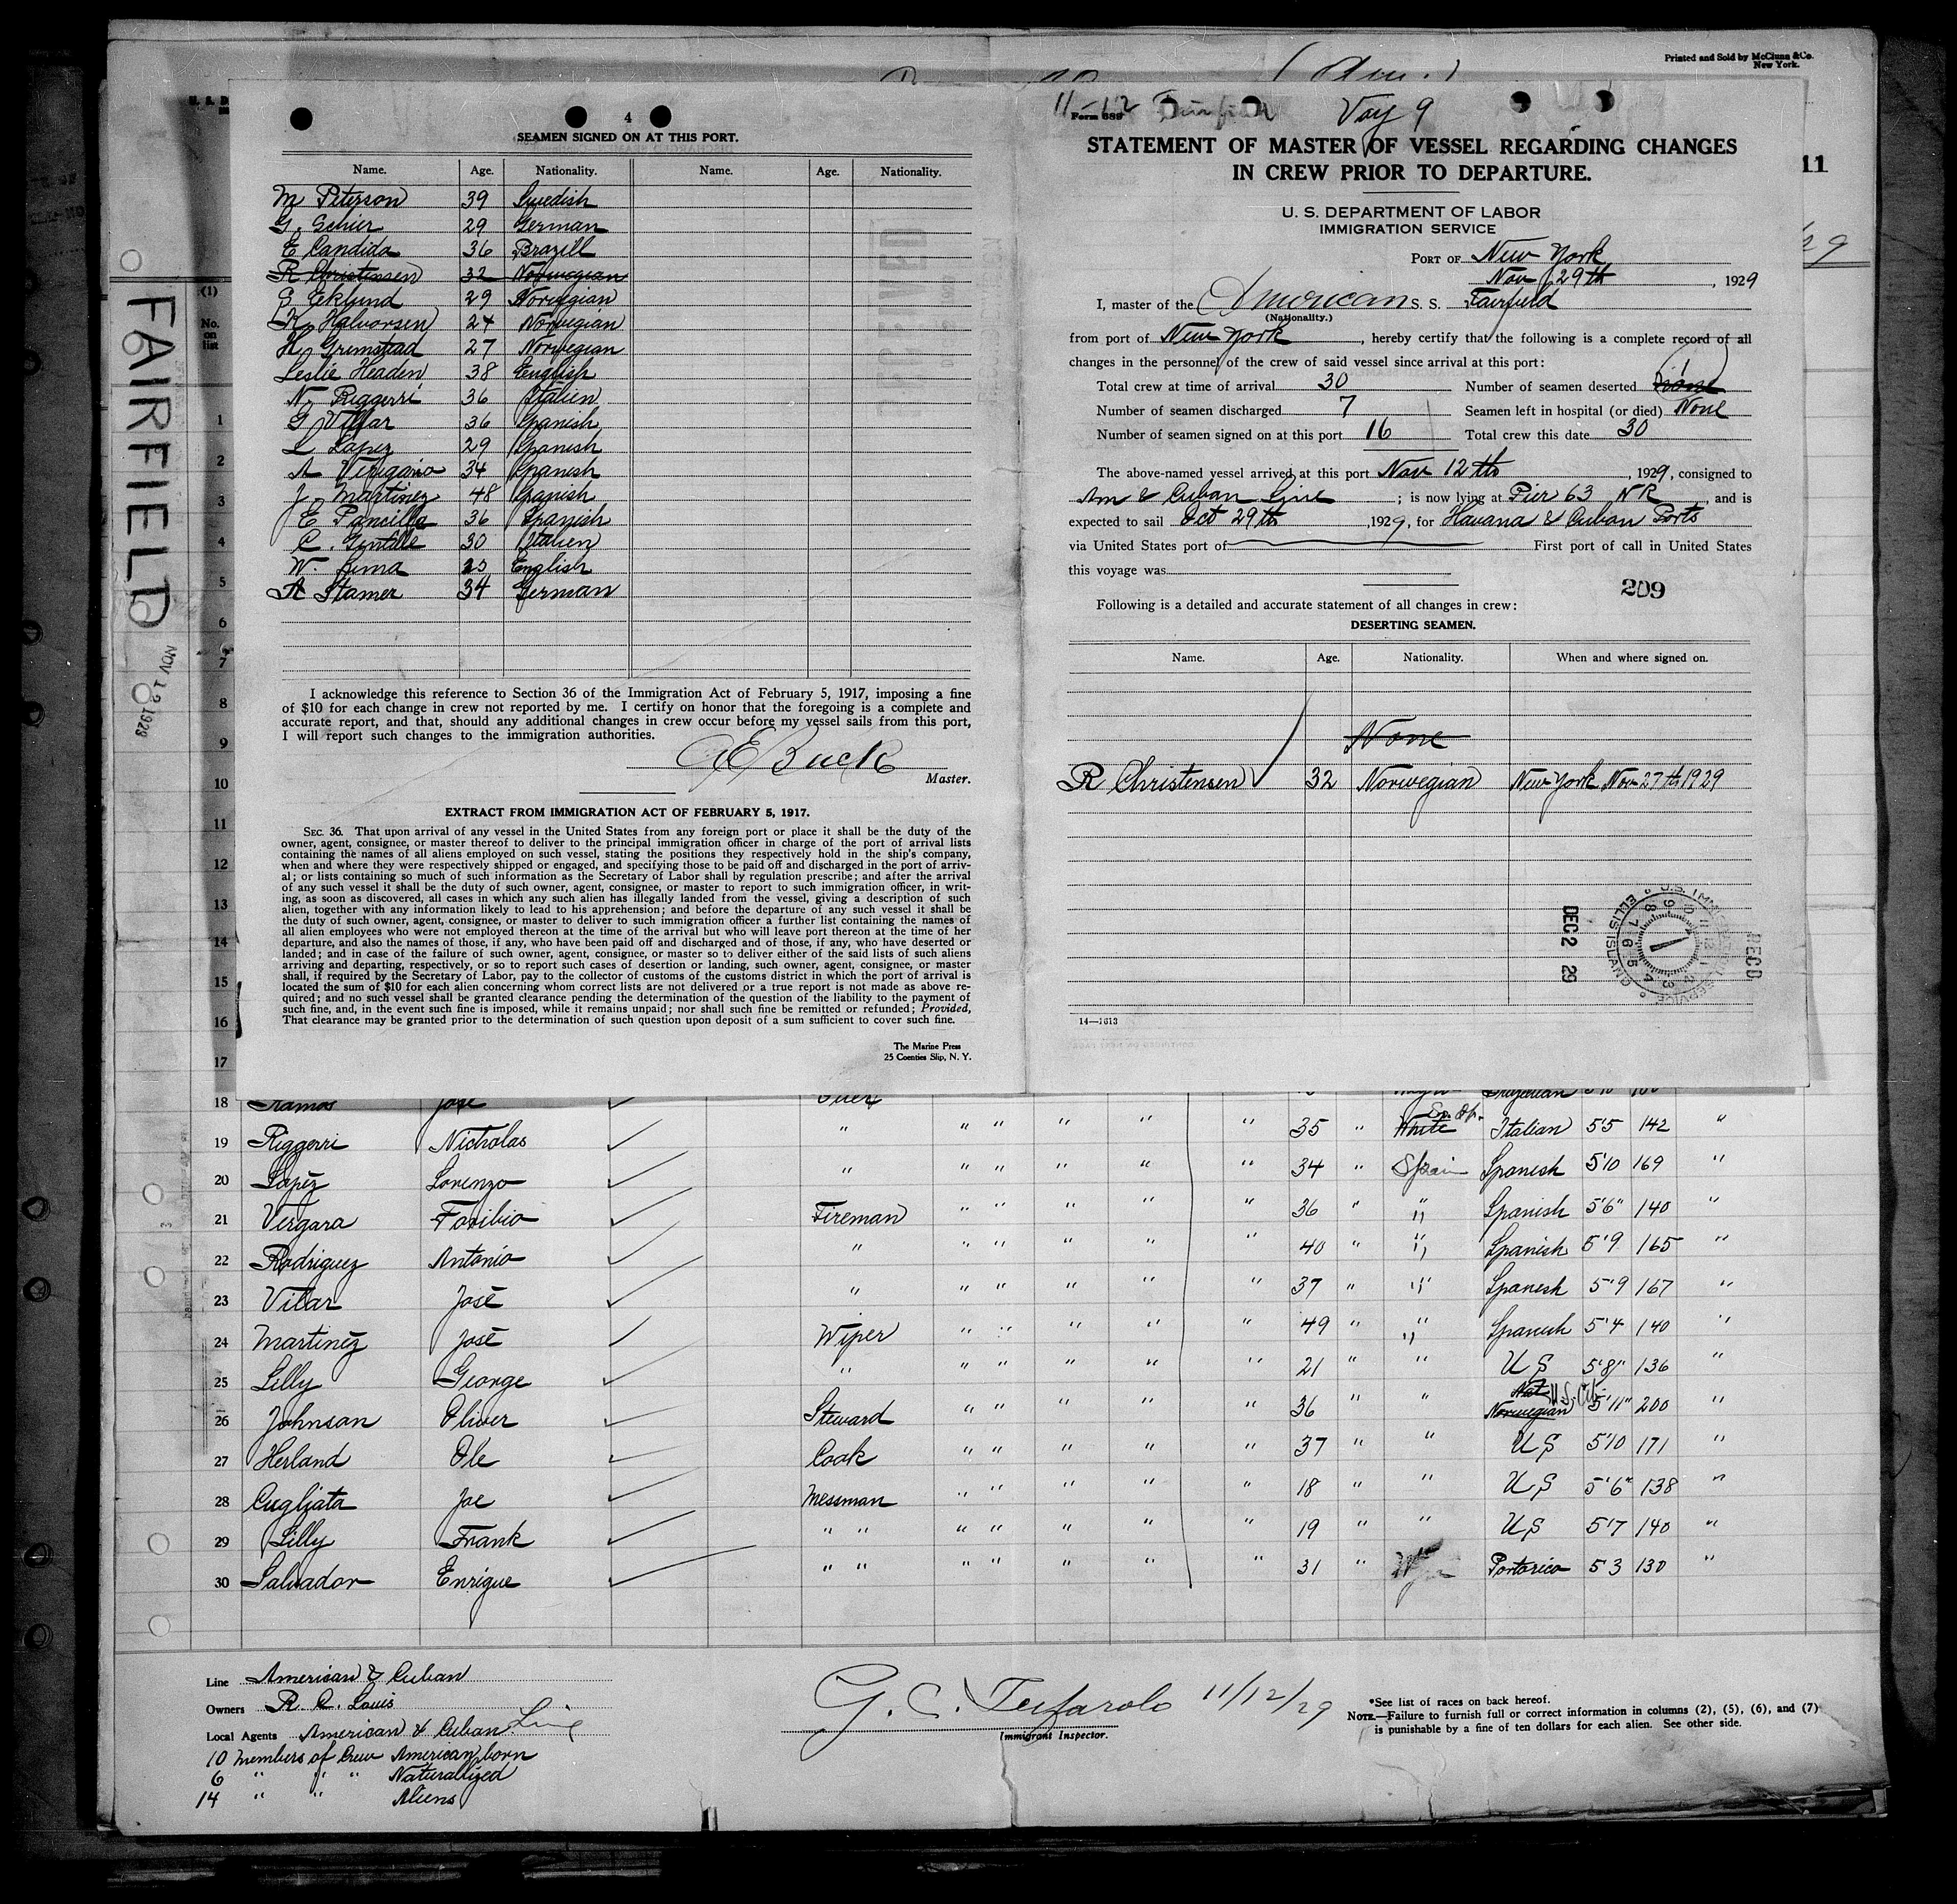 Printed and Sold by McClunn & Co.
New York.
11
FAIRFIELD
NOV 12 1929
(1)
No.
on
list
4
SEAMEN SIGNED ON AT THIS PORT.
Name. Age. Nationality. Name. Age. Nationality.
M Peterson 39 Swedish
G. Schier 29 German
E Candida 36 Brazill
R Christensen 32 Norwegian
G Eklund 29 Norwegian
K Halvorsen 24 Norwegian
H Grimstad 27 Norwegian
Leslie Headen 38 English
N. Riggerri 36 Italien
G Villar 36 Spanish
L Lapez 29 Spanish
A 34 Spanish
J. Martinez 48 Spanish
E Pancilla 36 Spanish
C. Gentile 30 Italien
W. English
A Stamer 34 German
I acknowledge this reference to Section 36 of the Immigration Act of February 5, 1917, imposing a fine
of $10 for each change in crew not reported by me. I certify on honor that the foregoing is a complete and
accurate report, and that, should any additional changes in crew occur before my vessel sails from this port,
I will report such changes to the immigration authorities.
Buck
Master.
EXTRACT FROM IMMIGRATION ACT OF FEBRUARY 5, 1917.
SEC. 36. That upon arrival of any vessel in the United States from any foreign port or place it shall be the duty of the
owner, agent, consignee, or master thereof to deliver to the principal immigration officer in charge of the port of arrival lists
containing the names of all aliens employed on such vessel, stating the positions they respectively hold in the ship's company,
when and where they were respectively shipped or engaged, and specifying those to be paid off and discharged in the port of arriv-
al; or lists containing so much of such information as the Secretary of Labor shall by regulation prescribe; and after the arrival
of any such vessel it shall be the duty of such owner, agent, consignee, or master to report to such immigration officer, in writ-
ing, as soon as discovered, all cases in which any such alien has illegally landed from the vessel, giving a description of such
alien, together with any information likely to lead to his apprehension; and before the departure of any such vessel it shall be
the duty of such owner, agent, consignee, or master to deliver to such immigration officer a further list containing the names of
all alien employees who were not employed thereon at the time of the arrival but who will leave port thereon at the time of her
departure, and also the names of those, if any, who have been paid off and discharged and of those, if any, who have deserted or
landed; and in case of the failure of such owner, agent, consignee, or master so to deliver either of the said lists of such aliens
arriving and departing, respectively, or so to report such cases of desertion or landing, such owner, agent, consignee, or master
shall, if required by the Secretary of Labor, pay to the collector of customs of the customs district in which the port of arrival is
located the sum of $10 for each alien concerning whom correct lists are not delivered or a true report is not made as above re-
quired; and no such vessel shall be granted clearance pending the determination of the question of the liability to the payment of
such fine, and, in the event such fine is imposed, while it remains unpaid; nor shall such fine be remitted or refunded; Provided,
That clearance may be granted prior to the determination of such question upon deposit of a sum sufficient to cover such fine.
The Marine Press
25 Coenties Slip, N. Y.
1
2
3
4
5
6
7
8
9
10
11
12
13
14
15
16
17
11-12 Fairfield Voy 9
Form 689
STATEMENT OF MASTER OF VESSEL REGARDING CHANGES
IN CREW PRIOR TO DEPARTURE.
U. S. DEPARTMENT OF LABOR
IMMIGRATION SERVICE
PORT OF New York
Nov 29th, 1929
I, master of the American S. S. Fairfield
(Nationality.)
from port of New York, hereby certify that the following is a complete record of all
changes in the personnel of the crew of said vessel since arrival at this port:
Total crew at time of arrival 30 Number of seamen deserted 1
Number of seamen discharged 7 Seamen left in hospital (or died) None
Number of seamen signed on at this port 16 Total crew this date 30
The above-named vessel arrived at this port Nov 12th, 1929, consigned to
Am & Cuban Line; is now lying at Pier 63 NR, and is
expected to sail Oct 29th, 1929, for Havana & Cuban Ports
via United States port of First port of call in United States
this voyage was
209
Following is a detailed and accurate statement of all changes in crew:
DESERTING SEAMEN.
Name. Age. Nationality. When and where signed on.
None
R Christensen 32 Norwegian New York Nov 27th 1929
DEC 2 29
REC'D
U.S. IMMIGRATION SERVICE
ELLIS ISLAND
14—1613
18 Ramos Jose Oiler
19 Riggerri Nicholas " " " " " " 35 " White Italian 5'5 142 "
20 Lapez Lorenzo " " " " " " 34 " Spain Spanish 5'10 169 "
21 Vergara Toribio Fireman " " " " " 36 " " Spanish 5'6" 140 "
22 Rodriguez Antonio " " " " " " 40 " " Spanish 5'9 165 "
23 Vilar José " " " " " " 37 " " Spanesh 5'9 167 "
24 Martinez José Wiper " " " " " 49 " " Spanish 5'4 140 "
25 Lilly George " " " " " " 21 " " U S 5'8" 136 "
26 Johnson Oliver Steward " " " " " 36 " " Nat U.S. Cit. Norwegian 5'11" 200 "
27 Herland Ole Cook " " " " " 37 " " U S 5'10 171 "
28 Cugliata Joe Messman " " " " " 18 " " U S 5'6" 138 "
29 Lilly Frank " " " " " " " 19 " " U S 5'7 140 "
30 Salvador Enrique " " " " " " " 31 " Portorico 5 3 130 "
Line American & Cuban
Owners R. A. Louis
Local Agents American & Cuban Line
10 Members of Crew American born
6 " " " Naturallized
14 " " Aliens
G. C. Tufarolo 11/12/29
Immigrant Inspector.
*See list of races on back hereof.
NOTE.—Failure to furnish full or correct information in columns (2), (5), (6), and (7)
is punishable by a fine of ten dollars for each alien. See other side.